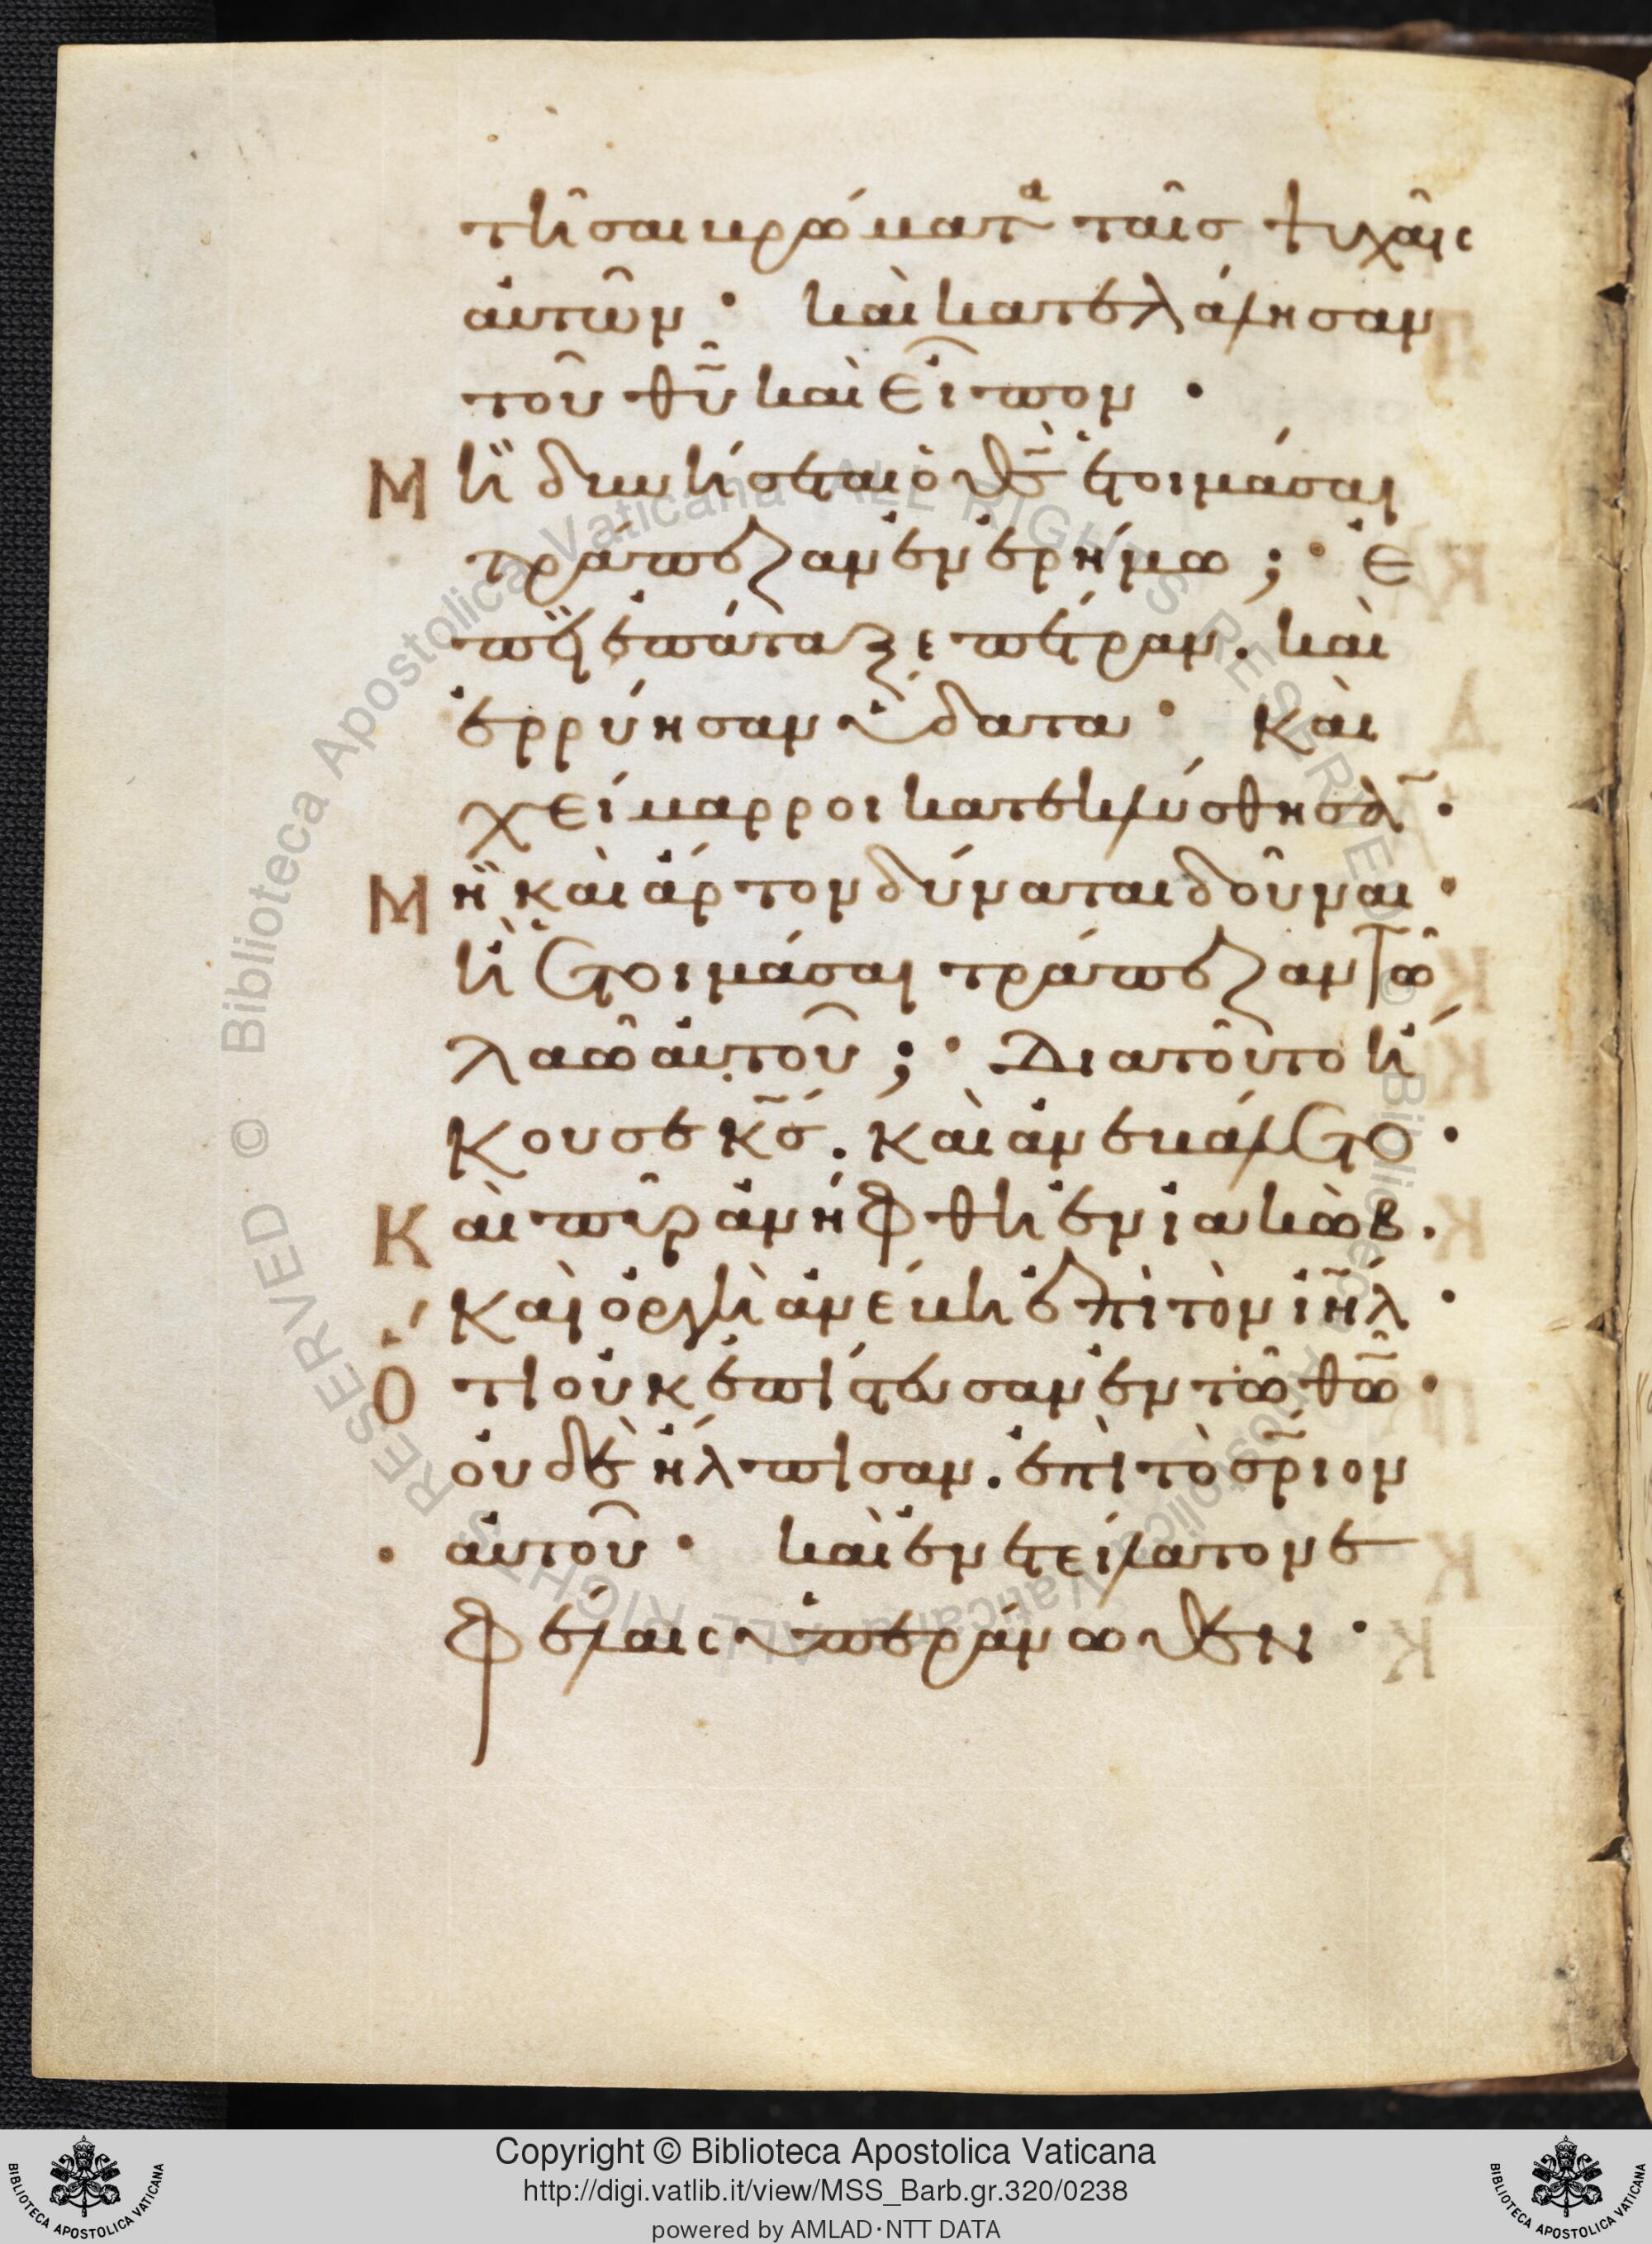 τῆσαι βρώματα ταῖσ ψυχαῖς
αὐτῶν · καὶ κατελάλησαν
τοῦ θ̅υ̅ καὶ εἶπον ·
Μὴ δυνήσεται ὁ θ̅σ̅ ἑτοιμάσαι
τράπεζαν ἐν ἐρήμω ; · ἐ
πεὶ ἐπάταξε πέτραν . καὶ
ἐρρύησαν ὕδατα · Καὶ
χείμαρροι κατεκλύσθησα̅ ·
Μὴ καὶ ἄρτον δύναται δοῦναι ·
ἢ ἑτοιμάσαι τράπεζαν τῶ
λαῶ αὐτοῦ ; · Διατοῦτο ἤ
κουσε κ̅σ̅ . καὶ ἀνεβάλετο ·
Καὶ πῦρ ἀνήφθη ἐν ἰακώβ .
Καὶ ὀργὴ ἀνέβη ἐπὶ τὸν ἰ̅η̅λ̅ ·
Ὅτι οὐκ ἐπίστευσαν ἐν τῶ θ̅ω̅ ·
οὐδὲ ἤλπισαν . ἐπὶ τὸ σ̅ρ̅ιον
αὐτοῦ · καὶ ἐνετείλατο νε
φέλαις ὑπεράνωθεν ·
Copyright © Biblioteca Apostolica Vaticana
http://digi.vatlib.it/view/MSS_Barb.gr.320/0238
powered by AMLAD·NTT DATA
BIBLIOTECA APOSTOLICA VATICANA
BIBLIOTECA APOSTOLICA VATICANA
© Biblioteca Apostolica Vaticana ALL RIGHTS RESERVED © Biblioteca Apostolica Vaticana ALL RIGHTS RESERVED